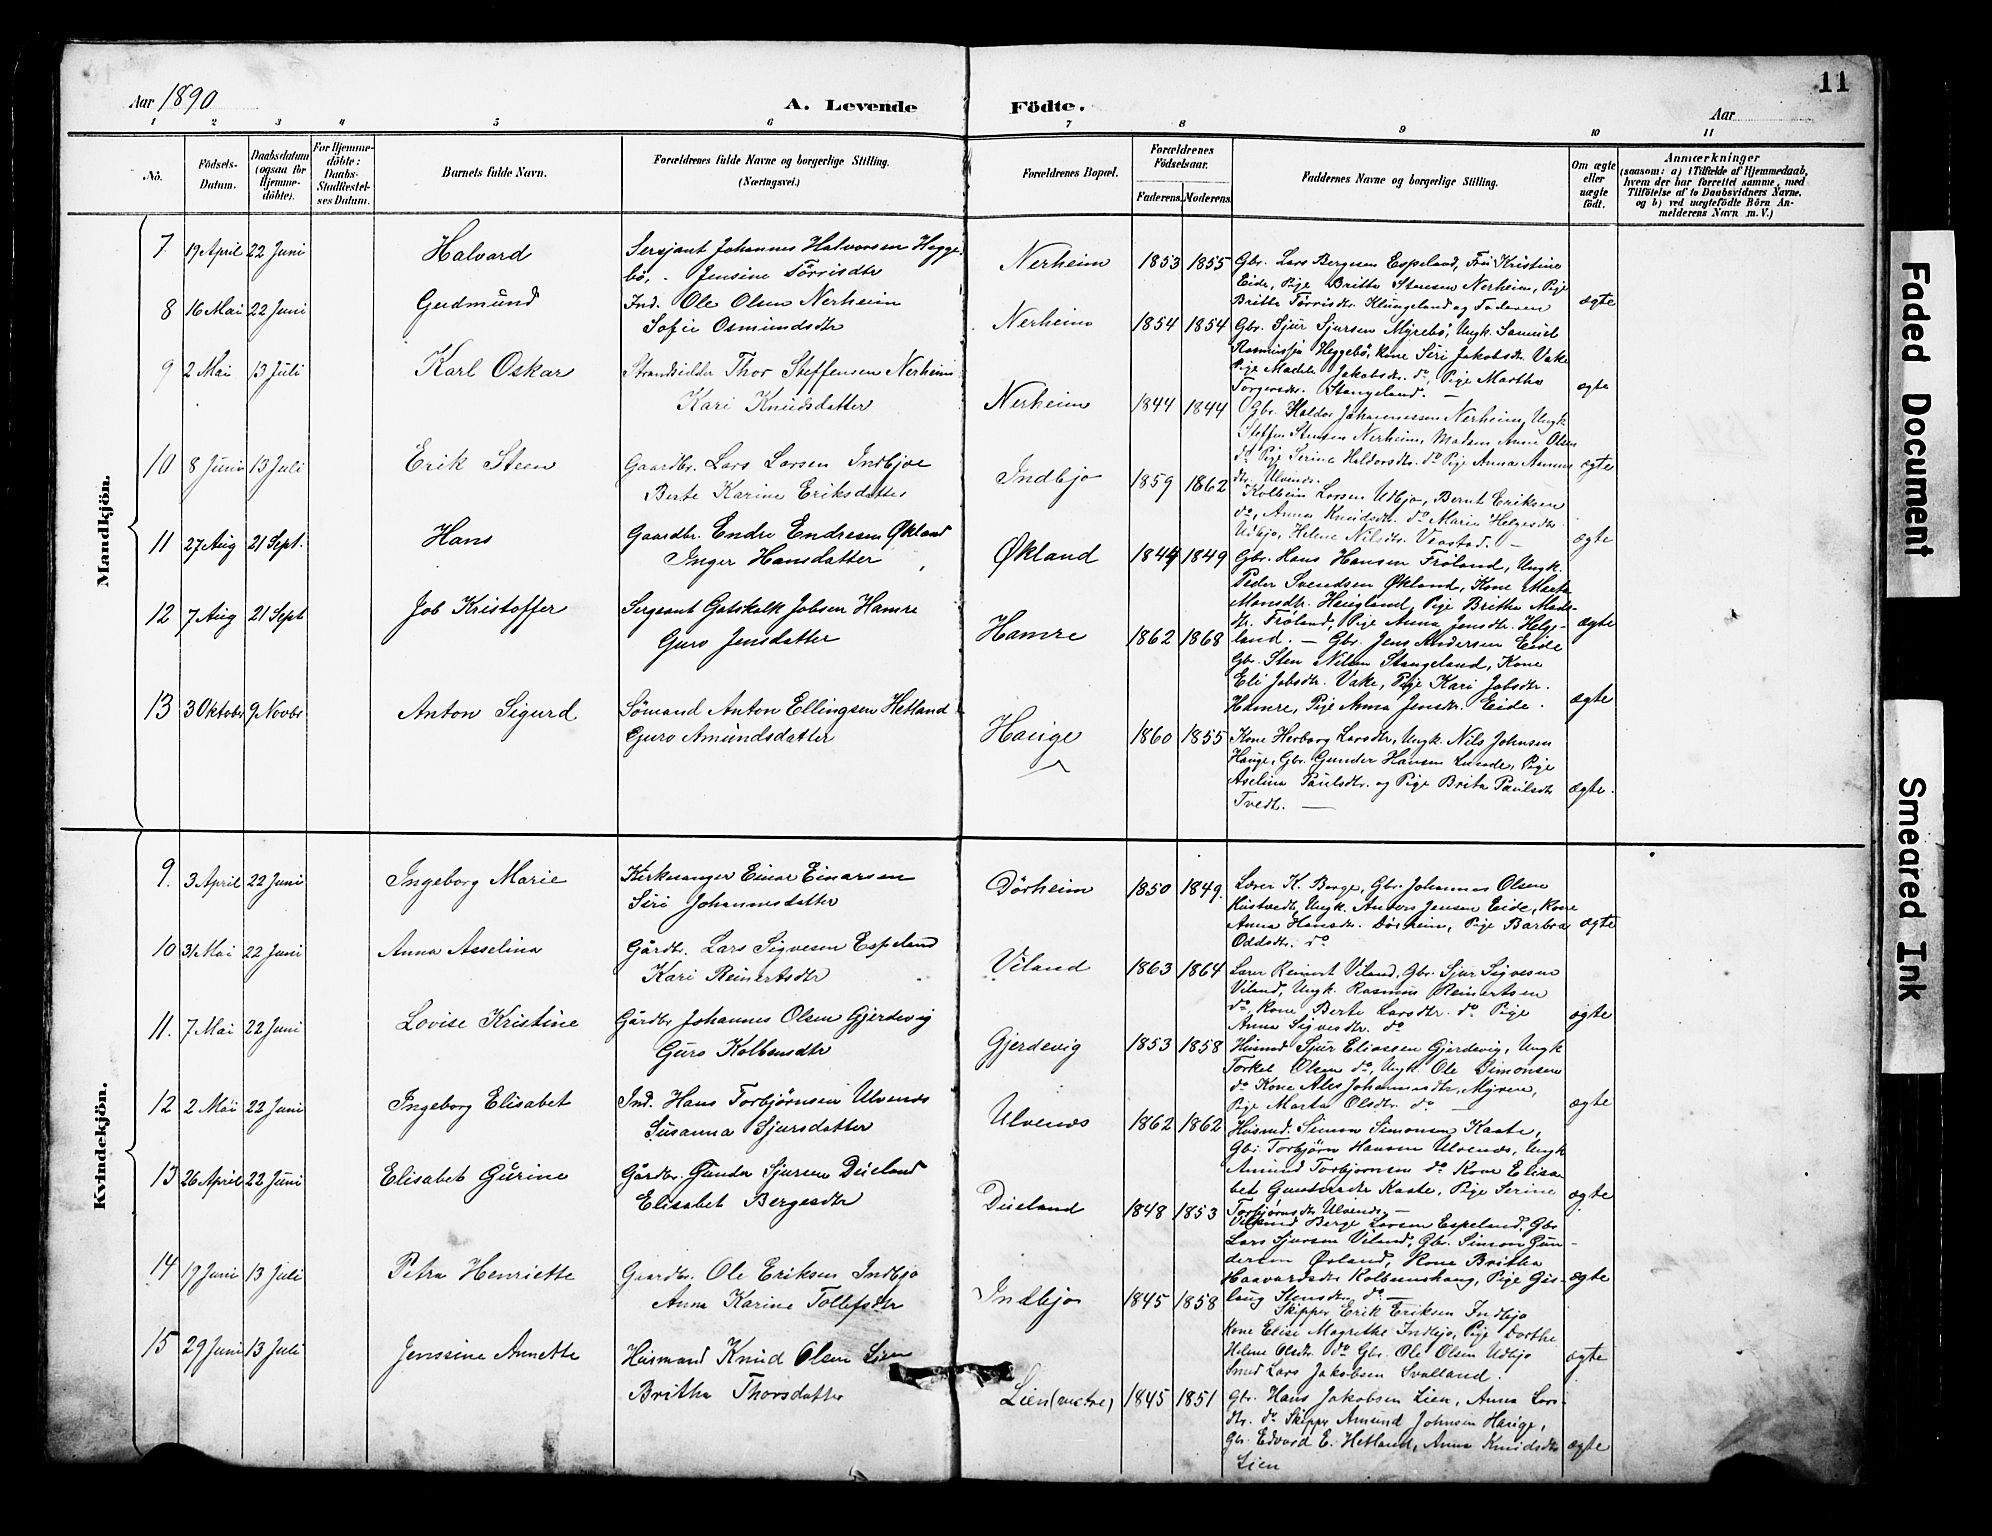 11
Aar 1890
A. Levende Födte.
Aar
1 2 3 4 5 6 7 8 9 10 11
No.
Födsels-Datum.
Daabsdatum (ogsaa for Hjemme-döbte).
For Hjemme-döbte: Daabs-Stadfæstel-ses Datum.
Barnets fulde Navn.
Forældrenes fulde Navne og borgerlige Stilling.
(Næringsvei.)
Forældrenes Bopæl.
Forældrenes Födselsaar.
Faderens. Moderens.
Faddernes Navne og borgerlige Stilling.
Om ægte eller uægte födt.
Anmærkninger
(saasom: a) i Tilfælde af Hjemmedaab,
hvem der har forrettet samme, med
Tilföielse af to Daabsvidners Navne.
og b) ved uægtefödte Börn An-
melderens Navn m. V.)
Mandkjön.
7 19 April 22 Juni Halvard Sersjant Johannes Halvorsen Hegge-
bö, - Jensine Törrisdtr
Nerheim 1853 1855 Gbr. Lars Bergesen Espeland, Frü Kristine
Eide, Pige Britta Stensen Nerheim, Pige
Britta Tørrisdtr. Klungeland og Faderen ægte
8 16 Mai 22 Juni Gudmünd Ind. Ole Olsen Nerheim
Sofie Osmundsdtr
Nerheim 1854 1854 Gbr. Sjur Sjursen Myrebö, Ungk. Samuel
Rasmussen Heggebö, Kone Siri Jakobsdtr. Vake
Pige Jakobsdtr. do, Pige Martha
Torgersdtr. Stangeland. — ægte
9 2 Mai 13 Juli Karl Oskar Strandsidder Thor Steffensen Nerheim
Kari Knüdsdatter
Nerheim 1844 1844 Gbr. Haldor Johannessen Nerheim, Ungk
Steffen Stensen Nerheim, Madam Anne Olsen
do Pige Serine Haldorsdtr. do Pige Anna
dtr. Ulvenes. ægte
10 8 Juni 13 Juli Erik Steen Gaardbr. Lars Larsen Indbjoe
Berte Karine Eriksdatter
Indbjo 1859 1862 Kolbein Larsen Udbjo, Bernt Eriksen
do, Anna Knudsdtr. do Marie Helgesdtr.
Udbjo, Helene Nilsdtr. — ægte
11 27 Aug 21 Sept. Hans Gaardbr. Endre Endresen Økland
Inger Hansdatter
Økland 1844 1849 Gbr. Hans Hansen Frøland, Ungk.
Peder Svendsen Økland, Kone Marta
Monsdtr. Haugland, Pige Britha Mads-
dtr. Frøland, Pige Anna Jensdtr. Helge-
land. — ægte
12 7 Aug 21 Sept Job Kristoffer Sergeant Gotskalk Jobsen Hamre
Guro Jensdatter
Hamre 1862 1868 Gbr. Jens Andersen Eide
Gbr. Sten Nilsen Stangeland, Kone
Eli Jobsdtr. Vake, Pige Kari Jobsdtr.
Hamre, Pige Anna Jensdtr. Eide. ægte
13 3 Oktobr 9 Novbr Anton Sigurd Sömand Anton Ellingsen Hetland
Guro Amundsdatter
Hauge 1860 1855 Kone Herborg Larsdtr, Ungk. Nils Johnsen
Hauge, Gbr. Gunder Hansen, Pige
Aselina Paulsdtr. og Pige Brita Paulsdtr
Tvedt. — ægte.
Kvindekjön.
9. 3 April 22 Juni Ingeborg Marie Kirkesanger Einar Einarsen
Siri Johannesdatter
Dörheim 1850 1849. Lærer K. Berge, Gbr. Johannes Olsen
Ungk. Anders Jensen Eide, Kone
Anna Hansdtr. Dörheim, Pige Barbra
Oddsdtr. do ægte
10 31 Mai 22 Juni Anna Asselina Gårdbr. Lars Sigvesen Espeland
Kari Reinertsdtr
Viland 1863 1864 Lærer Reinert Viland, Gbr. Sjur Sigvesen
Viland, Ungk. Rasmus Reinertsen
do, Kone Berte Larsdtr. do Pige
Anna Sigvesdtr. do ægte
11. 7 Mai 22 Juni Lovise Kristine Gårdbr Johannes Olsen Gjerdevig
Guro Kolbensdtr
Gjerdevig 1853 1858 Husmd Sjur Eliassen Gjerdevig, Ungk
Torkel Olsen do, Ungk. Ole Simonsen
do Kone Ales Johannesdtr, Myren,
Pige Marta Olsdtr. do — ægte
12 2 Mai 22 Juni Ingeborg Elisabet Ind. Hans Torbjørnsen Ulvenes
Susanna Sjursdatter
Ulvenes 1862 1862 Husmd. Simon Simonsen Kaate,
Gbr. Torbjørn Hansen Ulvenes, Ungk
Amund Torbjornsen do Kone Elisa-
bet Gundersdtr Kaate, Pige Serine
Torbjørnsdtr Ulvenes. — ægte.
13 26 April 22 Juni Elisabet Gürine Gårdbr. Gunder Sjursen Düeland
Elisabet Bergesdtr
Düeland 1848 1853 Berge Larsen Espeland, Gbr
Lars Sjursen Viland, Gbr. Simon Gun-
dersen Øvland, Kone Britha
Haavardsdtr Kolbeinshaug, Pige Gus-
laug Stensdtr. do — ægte
14 17 Juni 13 Juli Petra Henriette Gaardbr. Ole Eriksen Indbjo
Anna Karine Tollefsdtr
Indbjo 1845 1858 Skipper Erik Eriksen Indbjo
Kone Elise Magrethe Indbjo, Pige Dorthe
Helene Olsdtr. do Gbr. Ole Olsen Udbjo
Smed Lars Jakobsen Svalland. ægte
15 29 Juni 13 Juli Jenssine Annette Husmand Knud Olsen Lien
Britha Thorsdatter
Lien (vestre) 1845 1851 Gbr. Hans Jakobsen Lien, Anna Lars-
dtr. do Skipper Amund Johnsen Hauge,
Gbr. Edvard E. Hetland, Anna Knudsdtr
Lien ægte
Faded Document
Smeared Ink